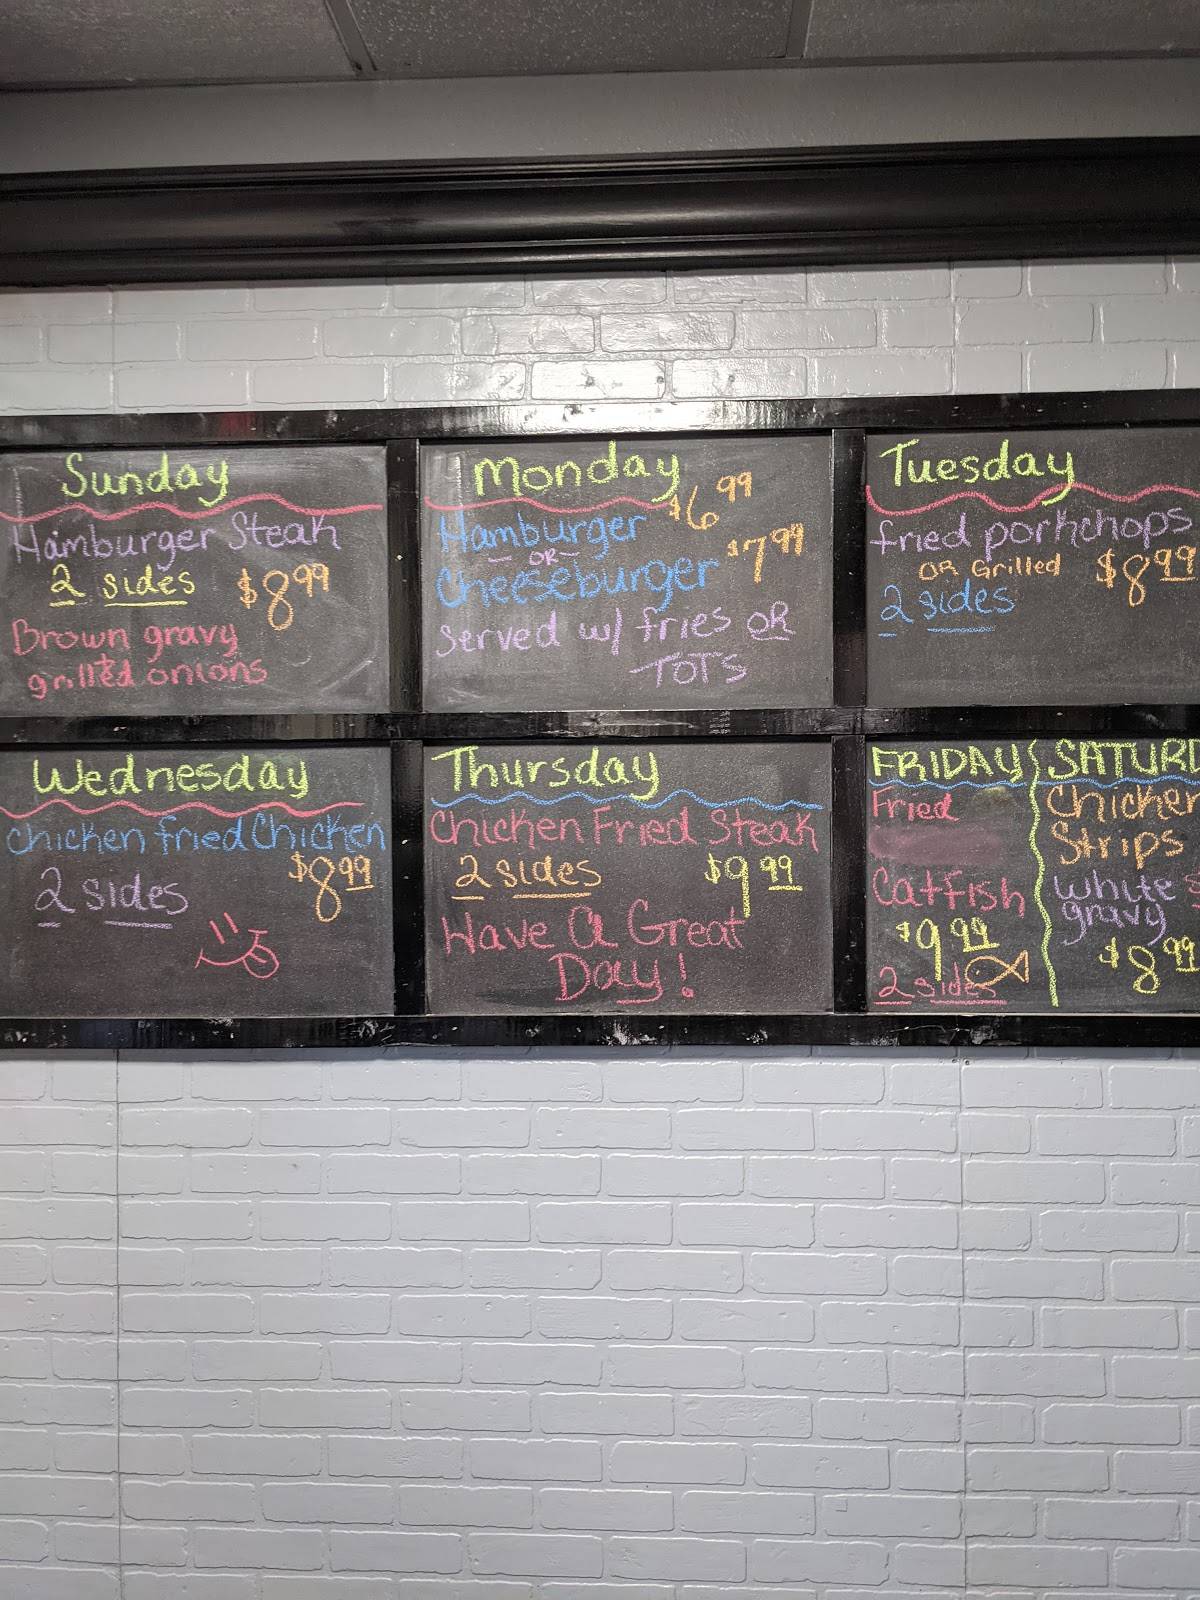 Sunday
Hamburger Steak
2 sides $8.99
Brown gravy
&
grilled onions
Monday
$6.99
Hamburger
-OR-
$7.99
Cheeseburger
Served w/ fries OR
TOTS
Tuesday
fried porkchops
OR Grilled $8.99
2 sides
Wednesday
chicken fried Chicken
$8.99
2 sides
Thursday
Chicken Fried Steak
2 sides $9.99
Have A Great
Day!
FRIDAY
Fried
CatFish
$9.99
2 sides
SATURD
Chicken
Strips
White
gravy
$8.99